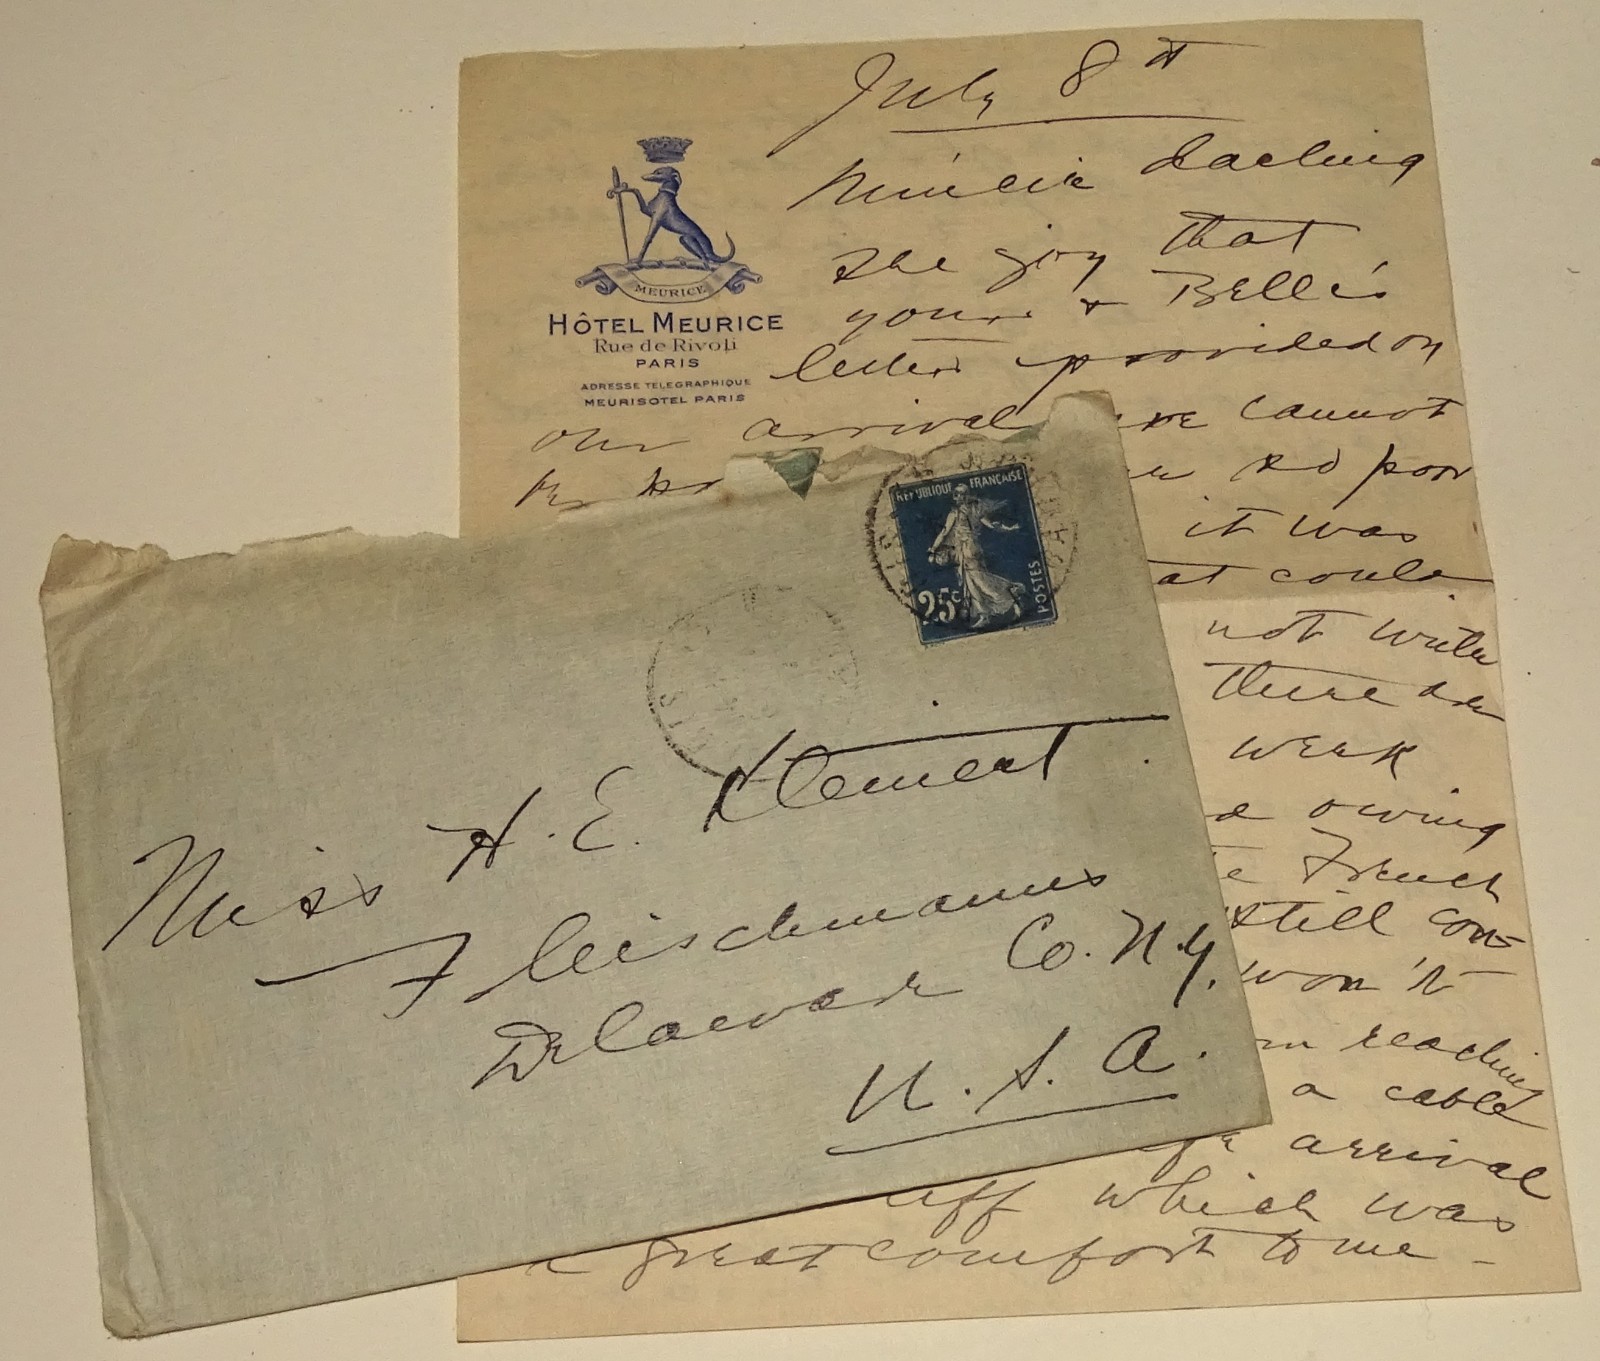 July 8th
darling
MEURICE
HÔTEL MEURICE
Rue de Rivoli
PARIS
ADRESSE TELEGRAPHIQUE
MEURISOTEL PARIS
the joy that
yours & Belle's
letters provided on
our arrival we cannot
so poor
it was
at could
not write
there are
week
owing
French
still con-
won't
reaching
a cable
arrival
which was
great comfort to me -
REPUBLIQUE FRANÇAISE
25c
POSTES
Miss H. E. Klement
Fleischmanns
Delaware Co. N.Y.
U. S. A.